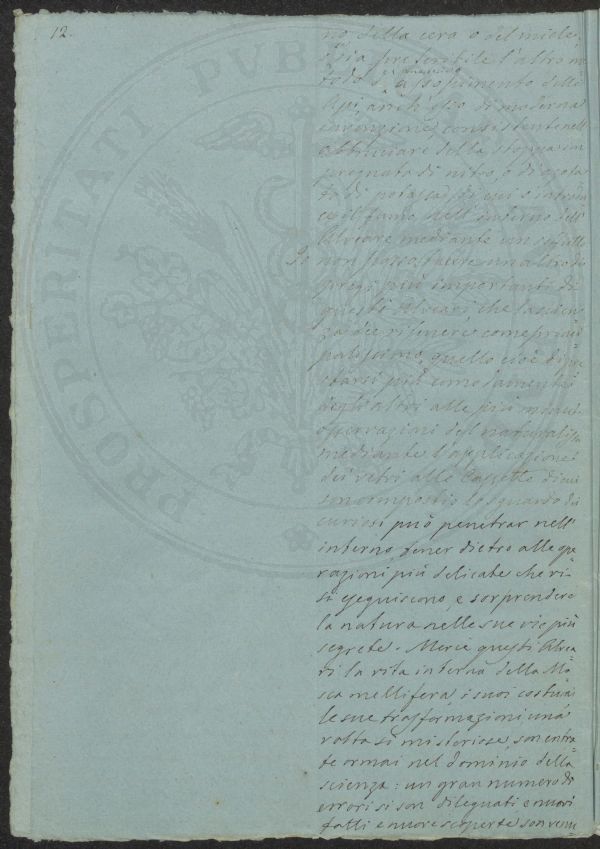 12.
no della cera o del miele,
sia preferibile l'altro me
todo d'assopimento delle
Api, anch'esso di moderna
invenzione, consistente nell'
abbruciare della stoppa im
pregnata di nitro, o di
to di potassa, di cui s'introdu
ce il fumo nell'interno dell'
Alveare mediante un soffietto
non posso tacere un altro dei
pregi più importanti di
questi Alveari, che la scien
za dee ritenere come princi
palissimo, quello cioè di pre
starsi più comodamente
degli altri alle più minute
osservazioni del naturalista
mediante l'applicazione
dei vetri alle Cassette di cui
son composti, lo sguardo dei
curiosi può penetrar nell'
interno, tener dietro alle ope
razioni più delicate che vi
si eseguiscono, e sorprendere
la natura nelle sue vie più
segrete. Mercè questi Alvea
ri la vita interna della Mo
sca mellifera, i suoi costumi
le sue trasformazioni una
volta sì misteriose, son entra
te ormai nel dominio della
scienza: un gran numero di
errori si son dileguati e nuovi
fatti e nuove scoperte son venu
PROSPERITATI PUB